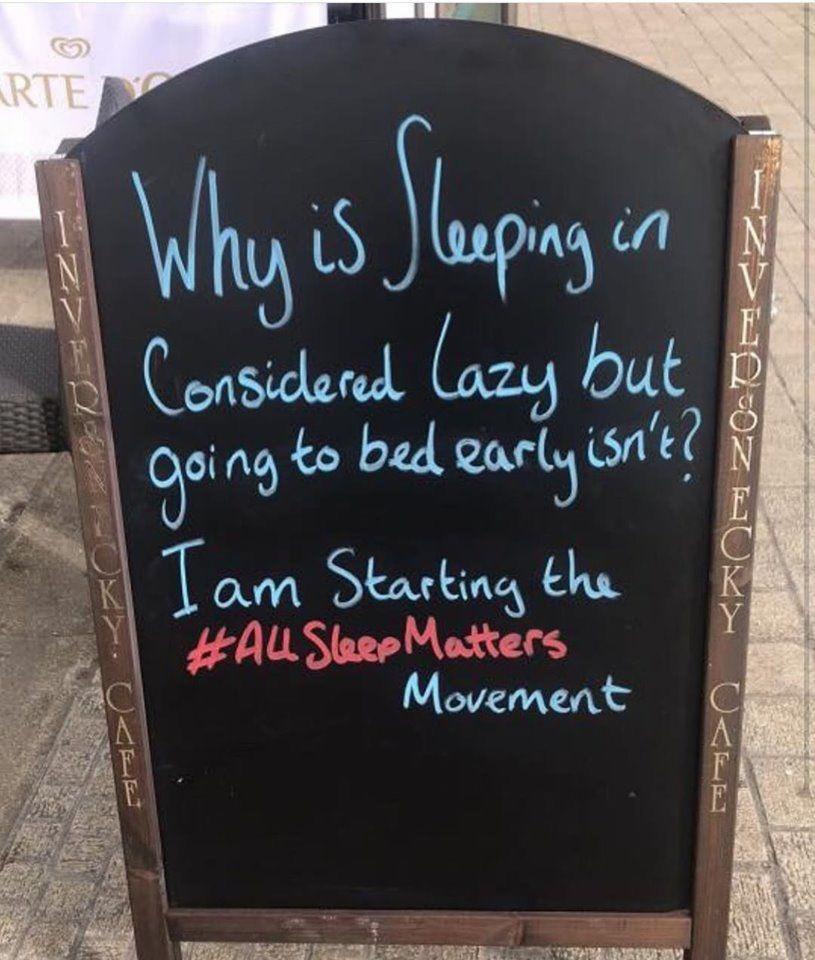 ARTE D'O
INVERSNECKY CAFE
Why is Sleeping in
Considered Lazy but
going to bed early isn't?
I am Starting the
#AllSleepMatters
Movement
INVERSNECKY CAFE